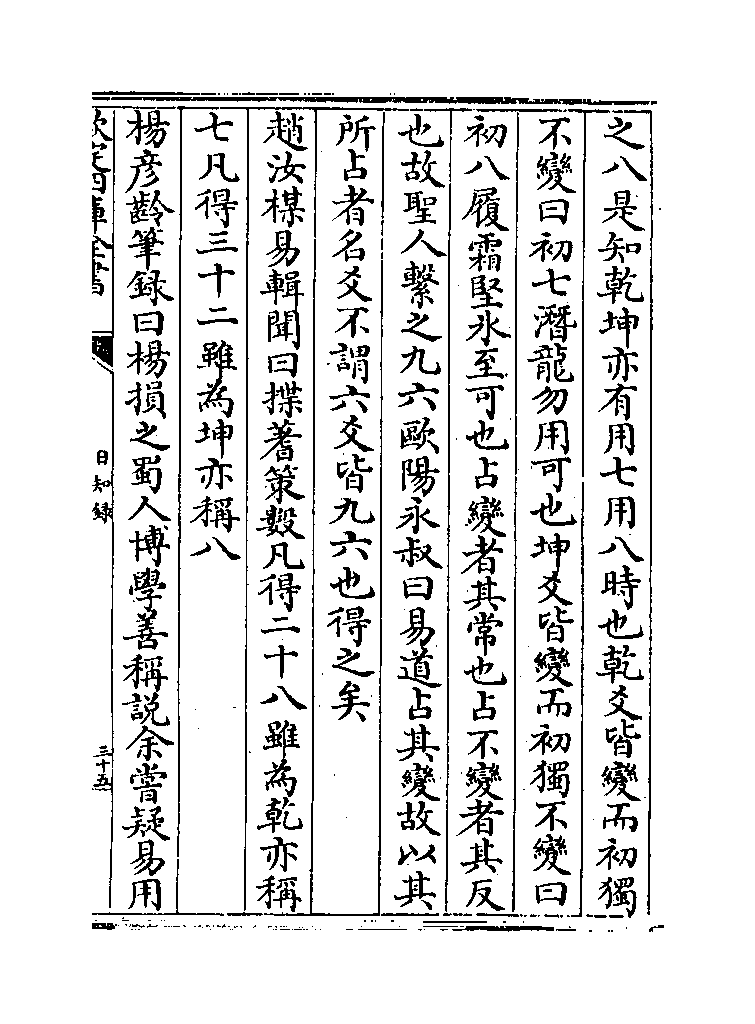 之八是知乾坤亦有用七用八時也乾爻皆變而初獨
不變曰初七潛龍勿用可也坤爻皆變而初獨不變曰
初八履霜堅氷至可也占變者其常也占不變者其反
也故聖人繫之九六歐陽永叔曰易道占其變故以其
所占者名爻不謂六爻皆九六也得之矣
趙汝楳易輯聞曰揲蓍策數凡得二十八雖為乾亦稱
七凡得三十二雖為坤亦稱八
楊彦齡筆録曰楊損之蜀人博學善稱説余嘗疑易用
欽定四庫全書
日知録
三十五